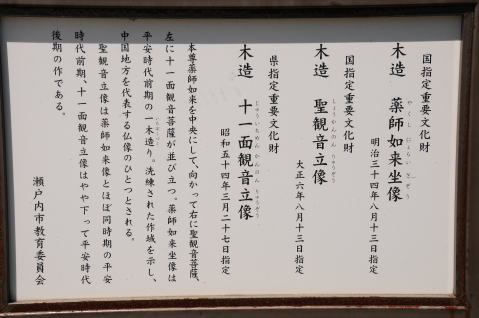 国指定重要文化財
木造　薬師如来坐像
やくし にょらい ざぞう
明治三十四年八月十三日指定
国指定重要文化財
木造　聖観音立像
しょうかんのん りゅうぞう
大正六年八月十三日指定
県指定重要文化財
木造　十一面観音立像
じゅういちめん かんのん りゅうぞう
昭和五十四年三月二十七日指定
本尊薬師如来を中央にして、向かって右に聖観音菩薩、
左に十一面観音菩薩が並び立つ。薬師如来坐像は
平安時代前期の一木造り。洗練された作域を示し、
いちぼく
中国地方を代表する仏像のひとつとされる。
聖観音立像は薬師如来像とほぼ同時期の平安
時代前期、十一面観音立像はやや下って平安時代
後期の作である。
瀬戸内市教育委員会